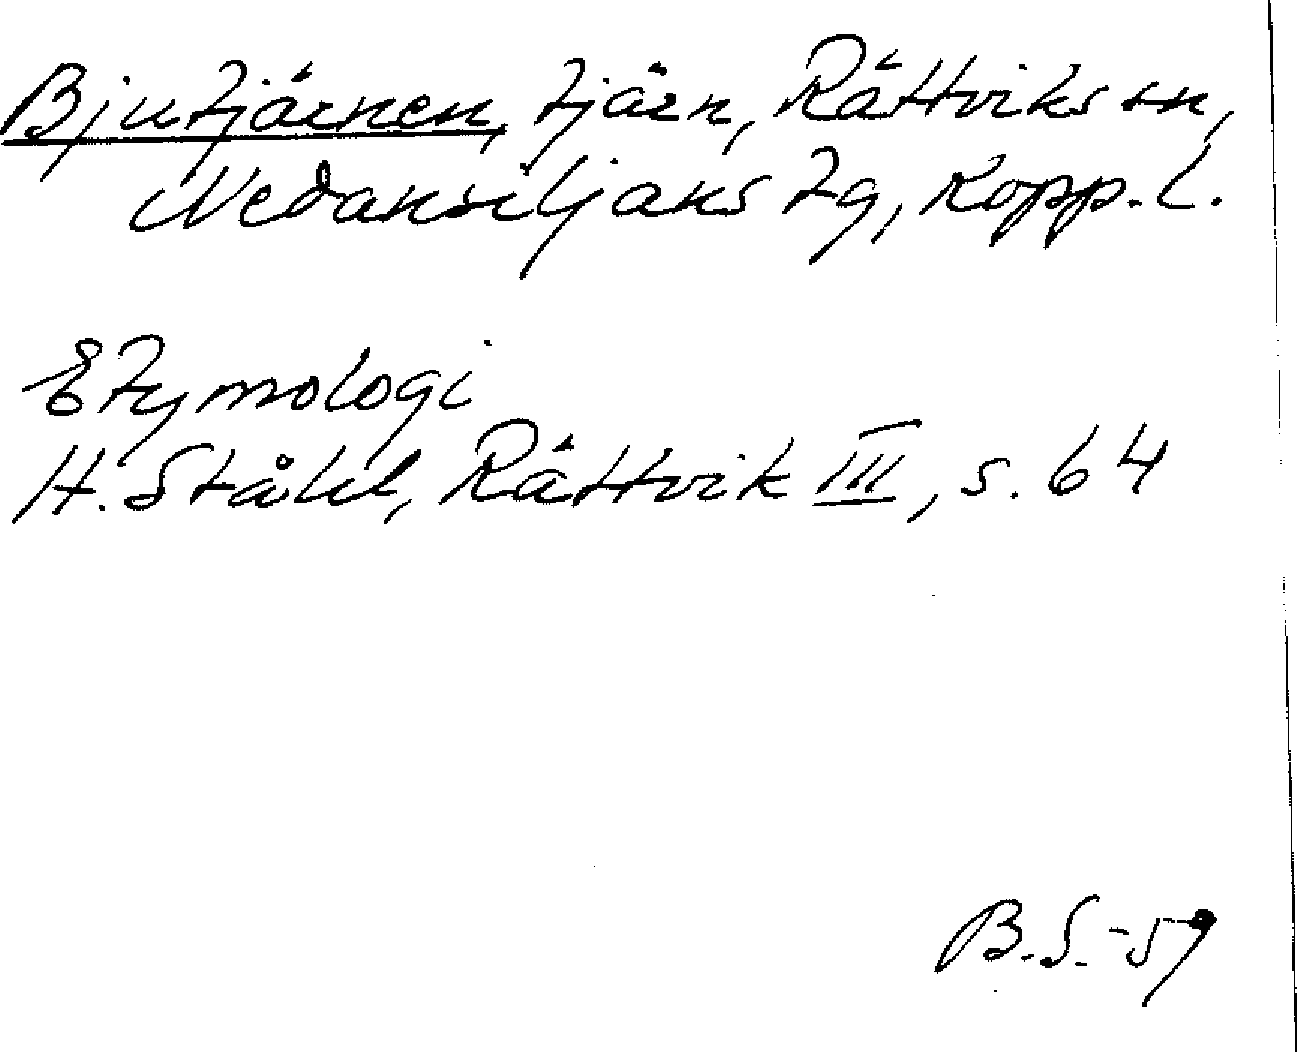 Bjutjärnen, tjärn, Rättviks sn,
Nedansiljans tg, Kopp. l.
Etymologi
H. Ståhl, Rättvik III, s. 64
B.S.-59